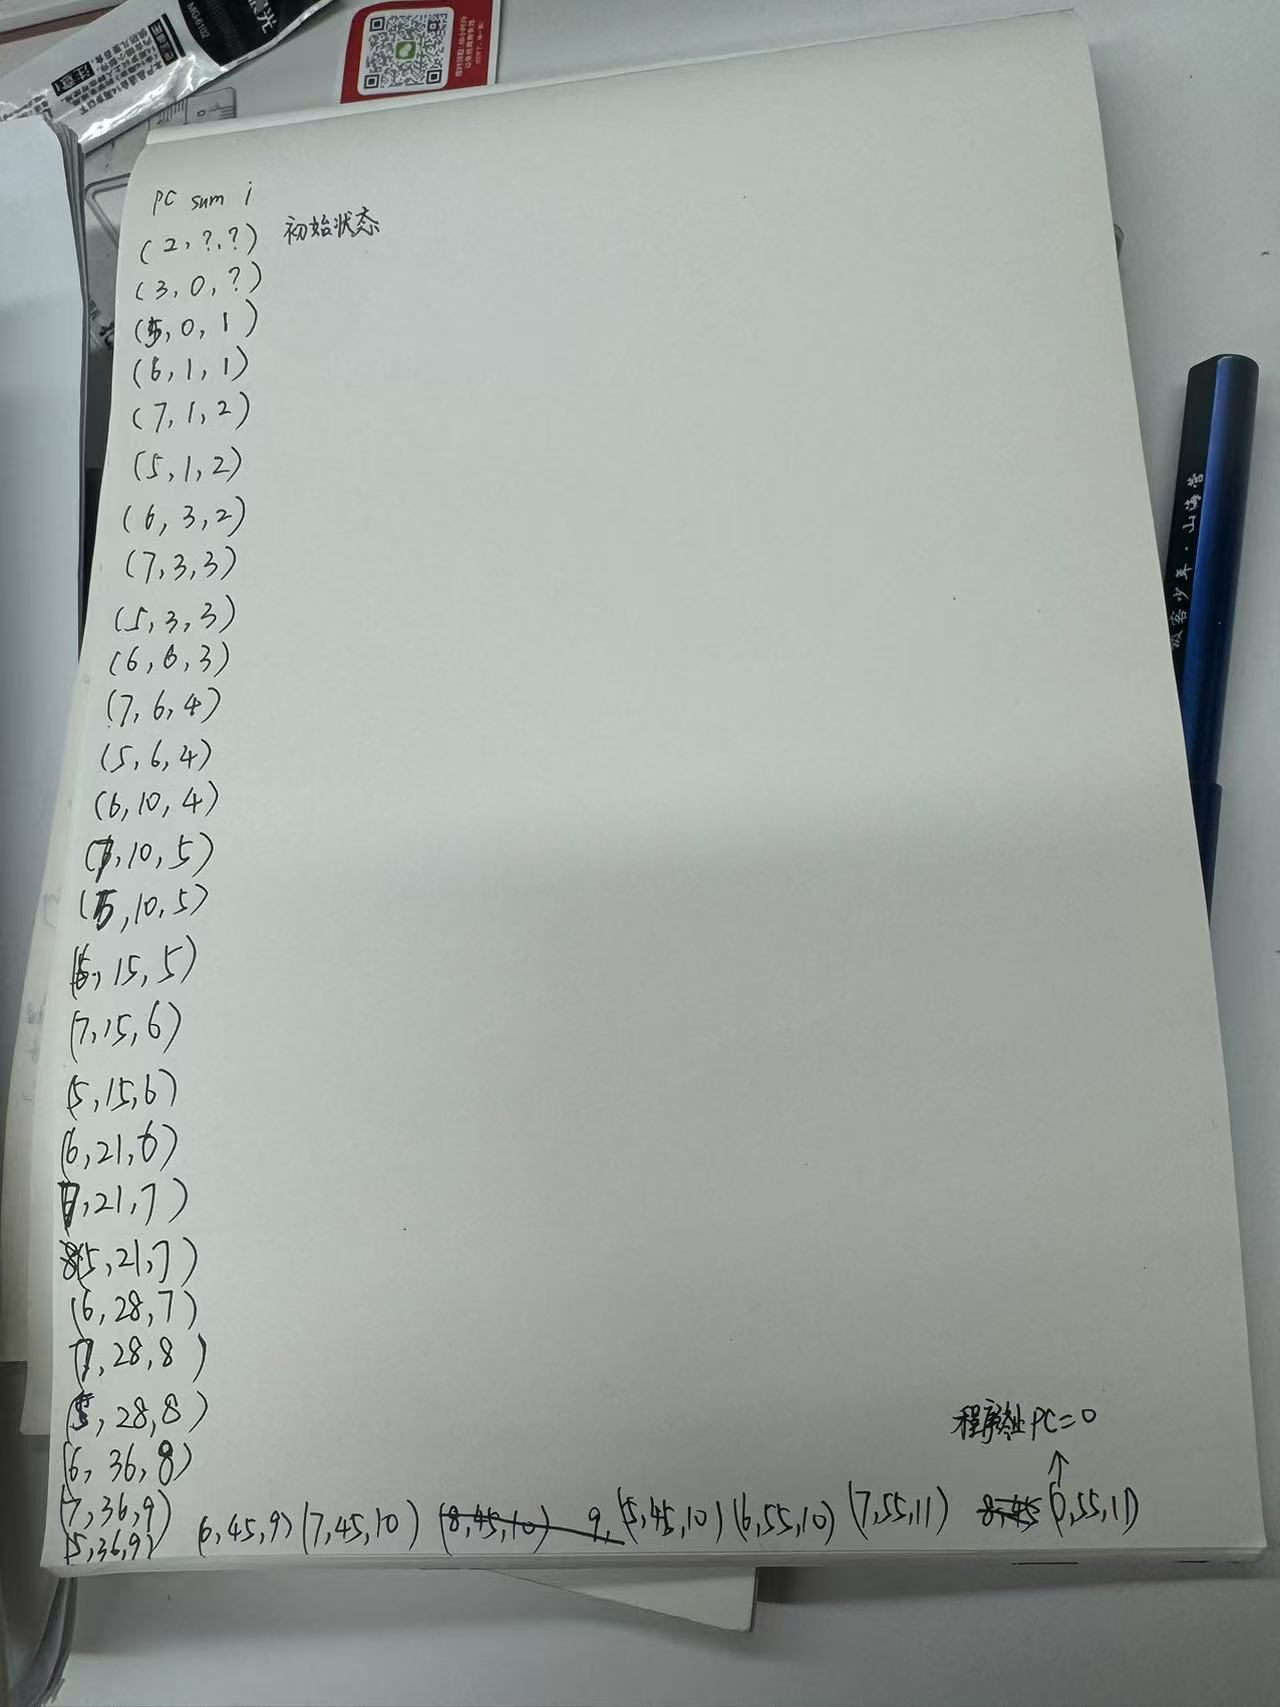 MG-6102
注意!
PC sum i
(2,?,?) 初始状态
(3,0,?)
(5,0,1)
(6,1,1)
(7,1,2)
(5,1,2)
(6,3,2)
(7,3,3)
(5,3,3)
(6,6,3)
(7,6,4)
(5,6,4)
(6,10,4)
(7,10,5)
(5,10,5)
(6,15,5)
(7,15,6)
(5,15,6)
(6,21,6)
(7,21,7)
(5,21,7)
(6,28,7)
(7,28,8)
(5,28,8)
(6,36,8)
(7,36,9)
(5,36,9)
(6,45,9) (7,45,10) (8,45,10) 9, (5,45,10) (6,55,10) (7,55,11) 8,45 (0,55,11)
程序终止 PC=0
极客少年·山海营